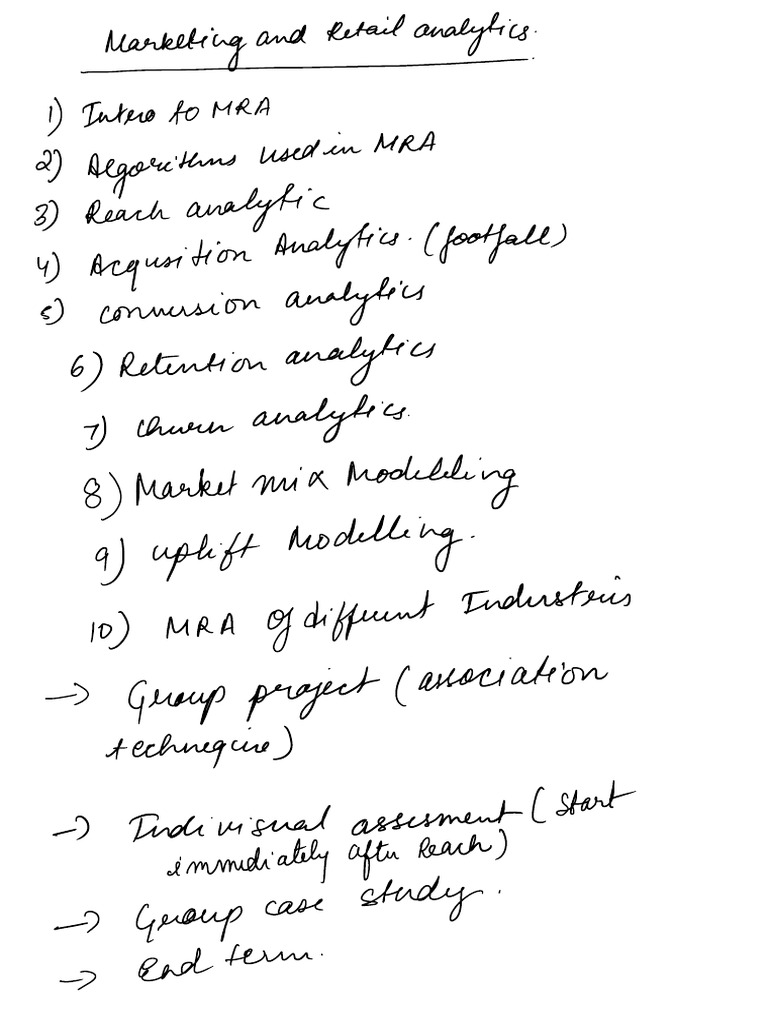 Marketing and Retail analytics.
1) Intro to MRA
2) Algorithms used in MRA
3) Reach analytic
4) Acqusition Analytics. (footfall)
5) conversion analytics
6) Retention analytics
7) churn analytics.
8) Market mix Modelling
9) uplift Modelling.
10) MRA of different Industeris
→ Group project (association
technequie)
→ Indivisual assesment (start
immediately after Reach)
→ Group case study.
→ End term.